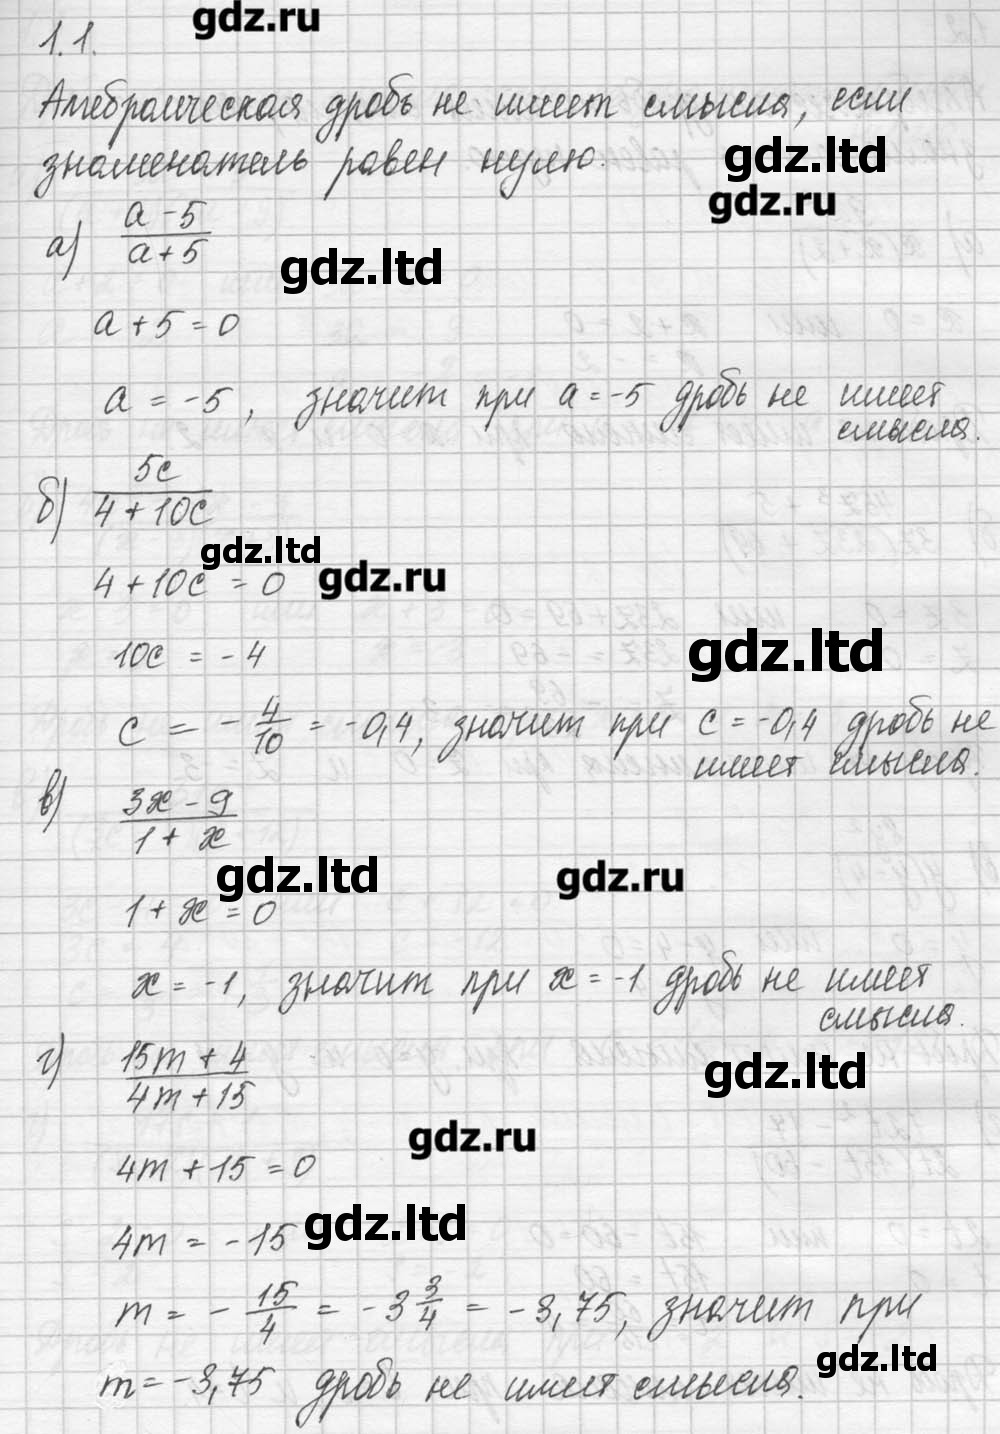 gdz.ru
1.1.
Алгебраическая дробь не имеет смысла, если
знаменатель равен нулю.
gdz.ltd
gdz.ru
а) (a - 5)/(a + 5)
gdz.ltd
a + 5 = 0
a = -5, значит при a = -5 дробь не имеет
смысла.
б) 5c/(4 + 10c)
gdz.ltd
4 + 10c = 0
gdz.ru
10c = -4
gdz.ltd
c = - 4/10 = -0,4, значит при c = -0,4 дробь не
имеет смысла.
в) (3x - 9)/(1 + x)
gdz.ltd
gdz.ru
1 + x = 0
x = -1, значит при x = -1 дробь не имеет
смысла.
г) (15m + 4)/(4m + 15)
gdz.ltd
gdz.ru
4m + 15 = 0
4m = -15
gdz.ltd
m = - 15/4 = -3 3/4 = -3,75, значит при
gdz.ltd
m = -3,75 дробь не имеет смысла.